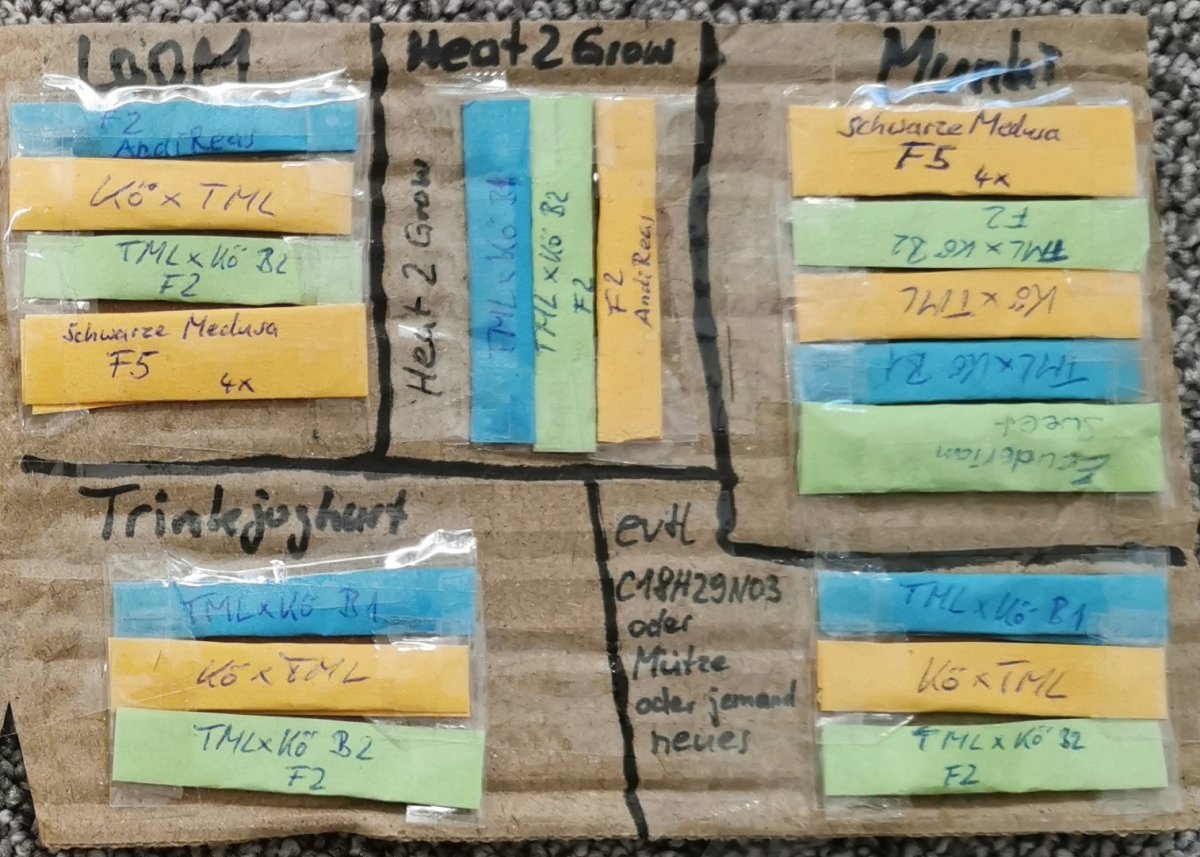 LOOM
F2
AndiReas
Kö x TML
TML x Kö B2
F2
Schwarze Medusa
F5
4x
Heat 2 Grow
Heat 2 Grow
TML x Kö B1
TML x Kö B2
F2
F2
AndiReas
Munki
Schwarze Medusa
F5
4x
TML x Kö B2
F2
Kö x TML
TML x Kö B1
Ecuderian
Sweet
Trinkjoghurt
TML x Kö B1
Kö x TML
TML x Kö B2
F2
evtl
C18H29NO3
oder
Mütze
oder jemand
neues
TML x Kö B1
Kö x TML
TML x Kö B2
F2